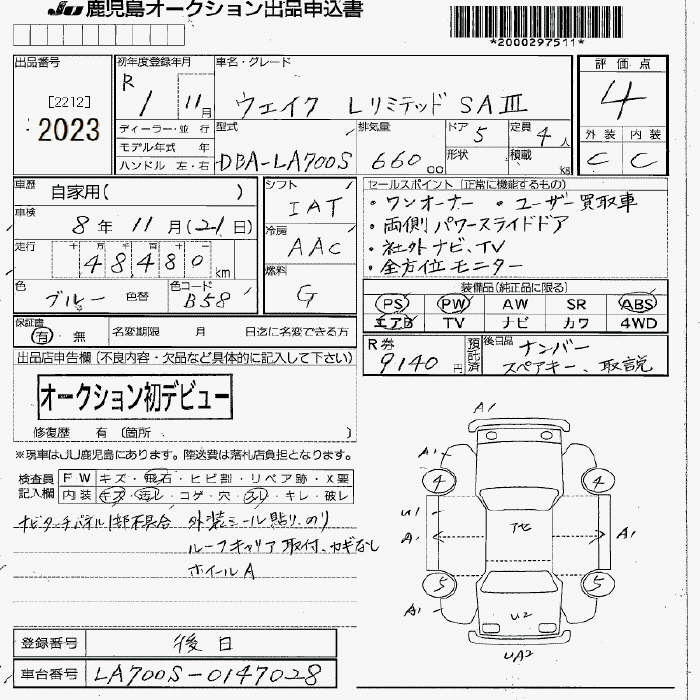 JU 鹿児島オークション出品申込書
*2000297511*
出品番号
[2212]
2023
初年度登録年月
R 1 11月
ディーラー・並 行
モデル年式 年
ハンドル 左・右
車名・グレード
ウェイク Lリミテッド SAⅢ
型式
DBA-LA700S
排気量
660 cc
ドア 5
形状
定員 4 人
積載 kg
評価点
4
外装 内装
C C
車歴
自家用( )
車検
8年 11月(21日)
走行
十 万 千 百 十 一
48480 km
色
ブルー 色替
色コード
B58
シフト
IAT
冷房
AAC
燃料
G
セールスポイント(正常に機能するもの)
・ワンオーナー ・ユーザー買取車
・両側パワースライドドア
・社外ナビ、TV
・全方位モニター
装備品(純正品に限る)
PS PW AW SR ABS
エアB TV ナビ カワ 4WD
保証書
有 無
名変期限 月 日迄に名変できる方
R券
9140 円
預託済
後日品 ナンバー
スペアキー、取説
出品店申告欄(不良内容・欠品など具体的に記入して下さい)
オークション初デビュー
修復歴 有 〔箇所 〕
※現車はJU鹿児島にあります。陸送費は落札店負担となります。
検査員記入欄
FW キズ・飛石・ヒビ割・リペア跡・X要
内装 キズ・汚レ・コゲ・穴・スレ・キレ・破レ
ナビタッチパネル1部不具合 外装シール貼り、のり
ルーフキャリア取付、カギなし
ホイールA
A1
A1
4
4
U1
A1
下七
A1
5
5
A1
U2
UA2
登録番号 後日
車台番号 LA700S-0147028